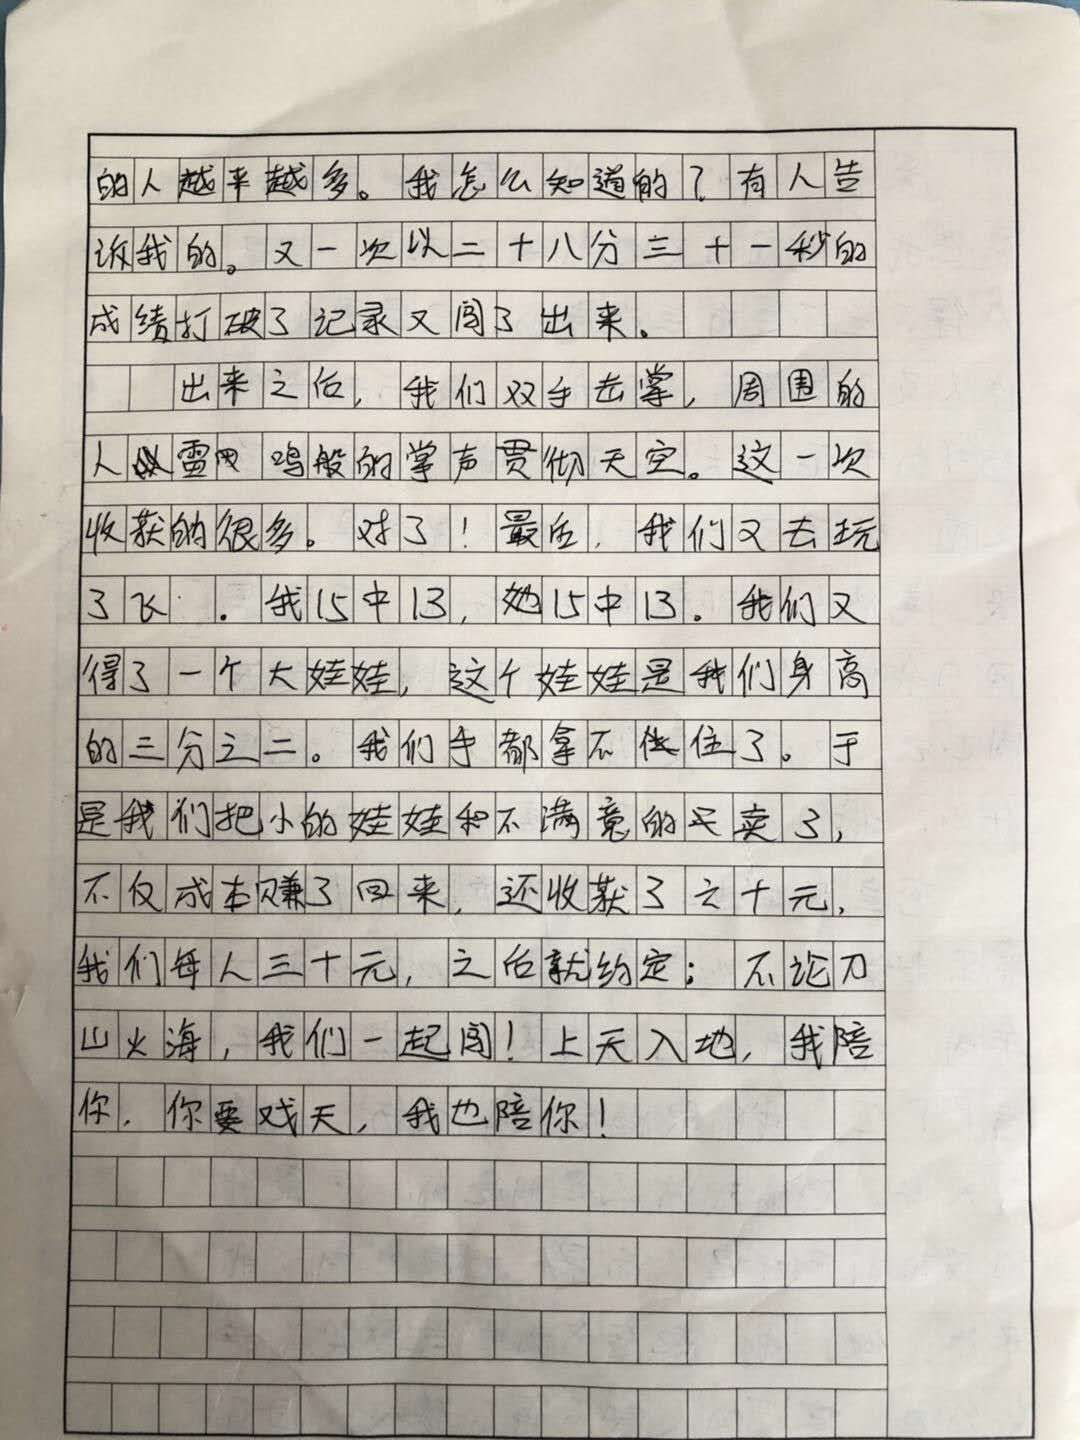 的人越来越多。我怎么知道的？有人告
诉我的。又一次以二十八分三十一秒的
成绩打破了记录又闯了出来。
出来之后，我们双手击掌，周围的
人雷鸣般的掌声贯彻天空。这一次
收获的很多。对了！最后，我们又去玩
了飞。我15中13，她15中13。我们又
得了一个大娃娃，这个娃娃是我们身高
的三分之二。我们手都拿不住了。于
是我们把小的娃娃和不满意的买卖了，
不仅成本赚了回来，还收获了六十元，
我们每人三十元，之后就约定：不论刀
山火海，我们一起闯！上天入地，我陪
你，你要戏天，我也陪你！